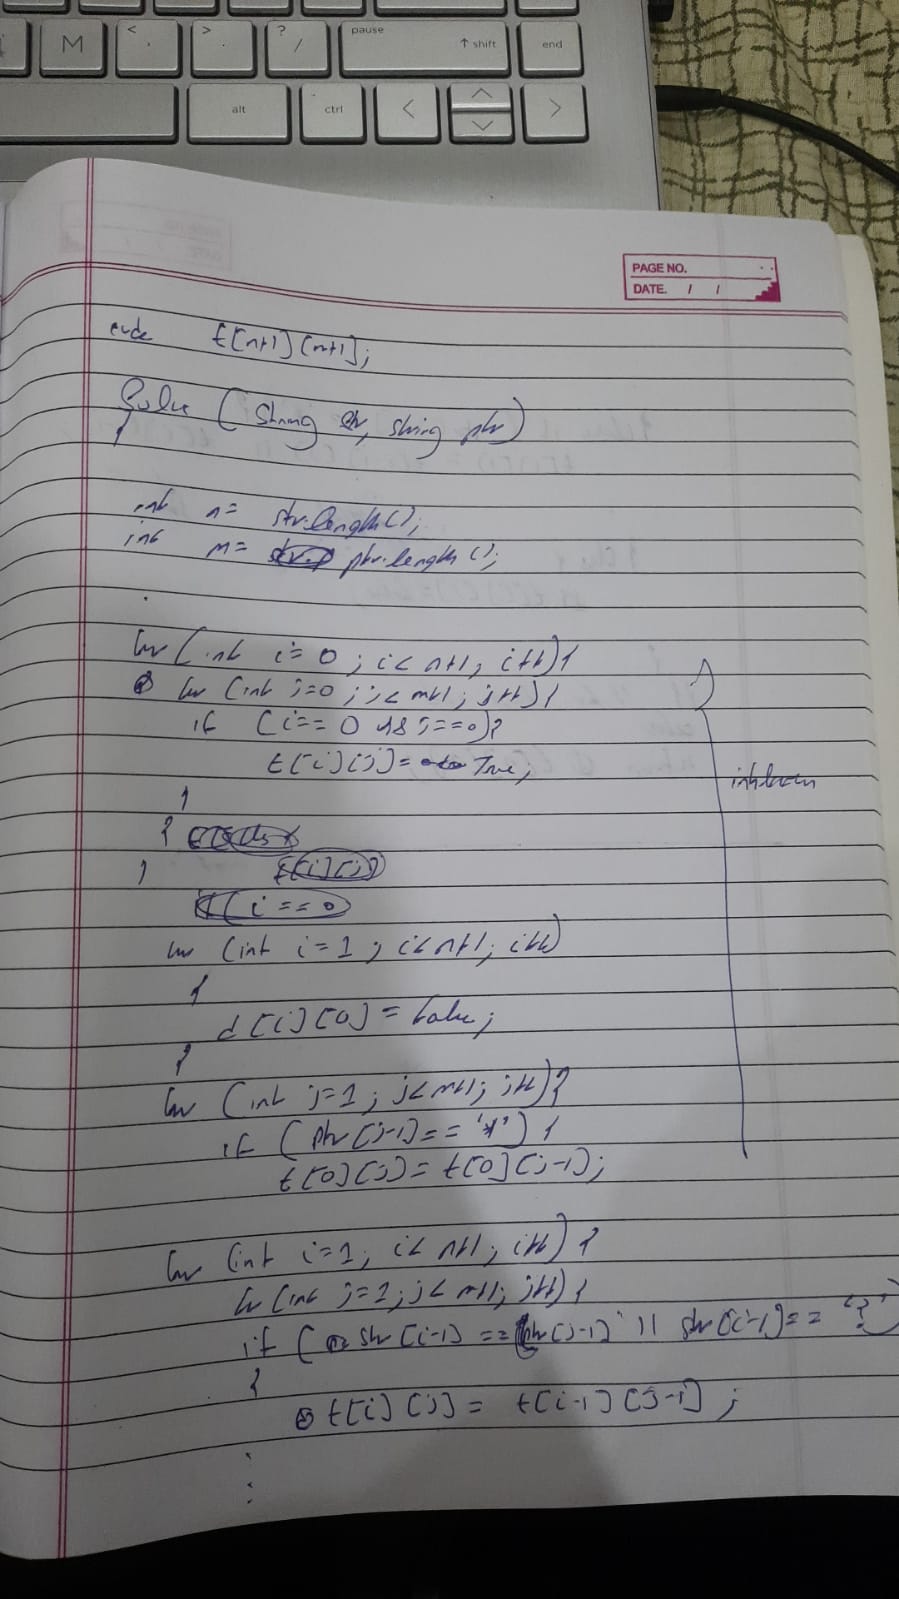 M
< ,
> .
? /
pause
↑ shift
end
alt
ctrl
<
>
PAGE NO.
DATE. / /
code t[n+1][m+1];
Solve (String str, string ptr)
{
int n= str.length();
int m= ptr.length();
for (int i=0; i<n+1; i++){
for (int j=0; j<m+1; j++){
if (i==0 && j==0){
t[i][j]= True;
}
}
}
for (int i=1; i<n+1; i++)
{
d[i][0] = false;
}
for (int j=1; j<m+1; j++){
if (ptr[j-1]=='*') {
t[0][j]= t[0][j-1];
for (int i=1; i<n+1; i++){
for (int j=1; j<m+1; j++){
if (str[i-1] ==ptr[j-1] || str[i-1]== '?')
{
t[i][j]= t[i-1][j-1];